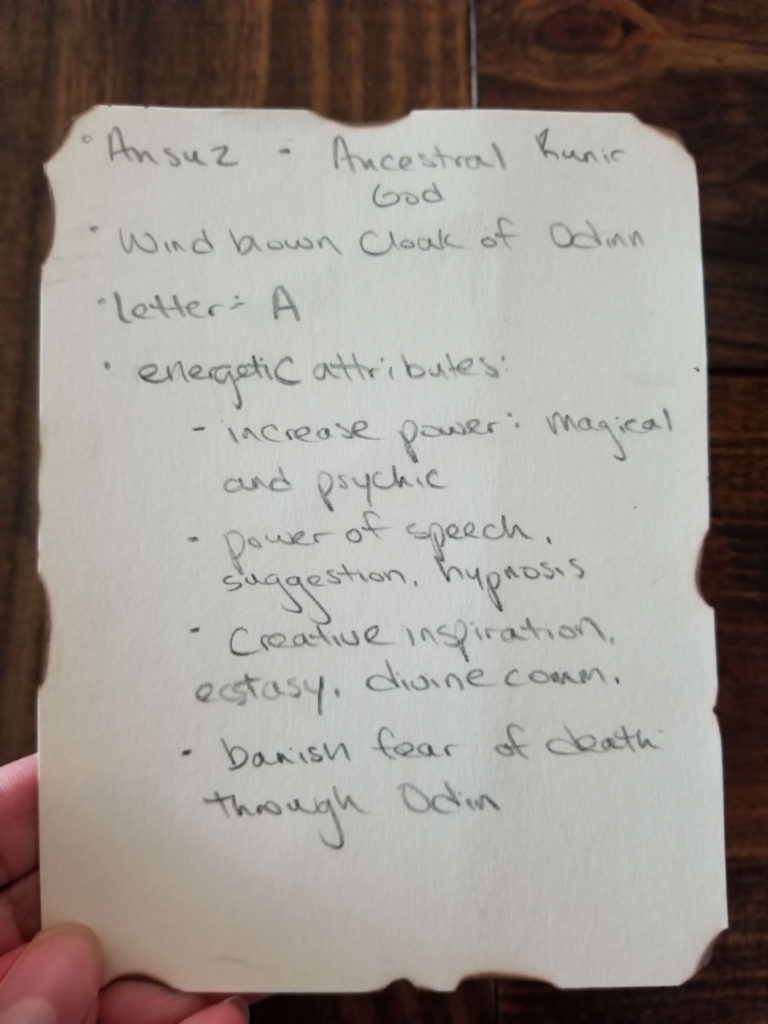 • Ansuz - Ancestral Runic
God
• Wind blown Cloak of Odinn
• letter: A
• energetic attributes:
- increase power: magical
and psychic
- power of speech,
suggestion, hypnosis
- Creative inspiration,
ecstasy, divine comm.
- banish fear of death
through Odin